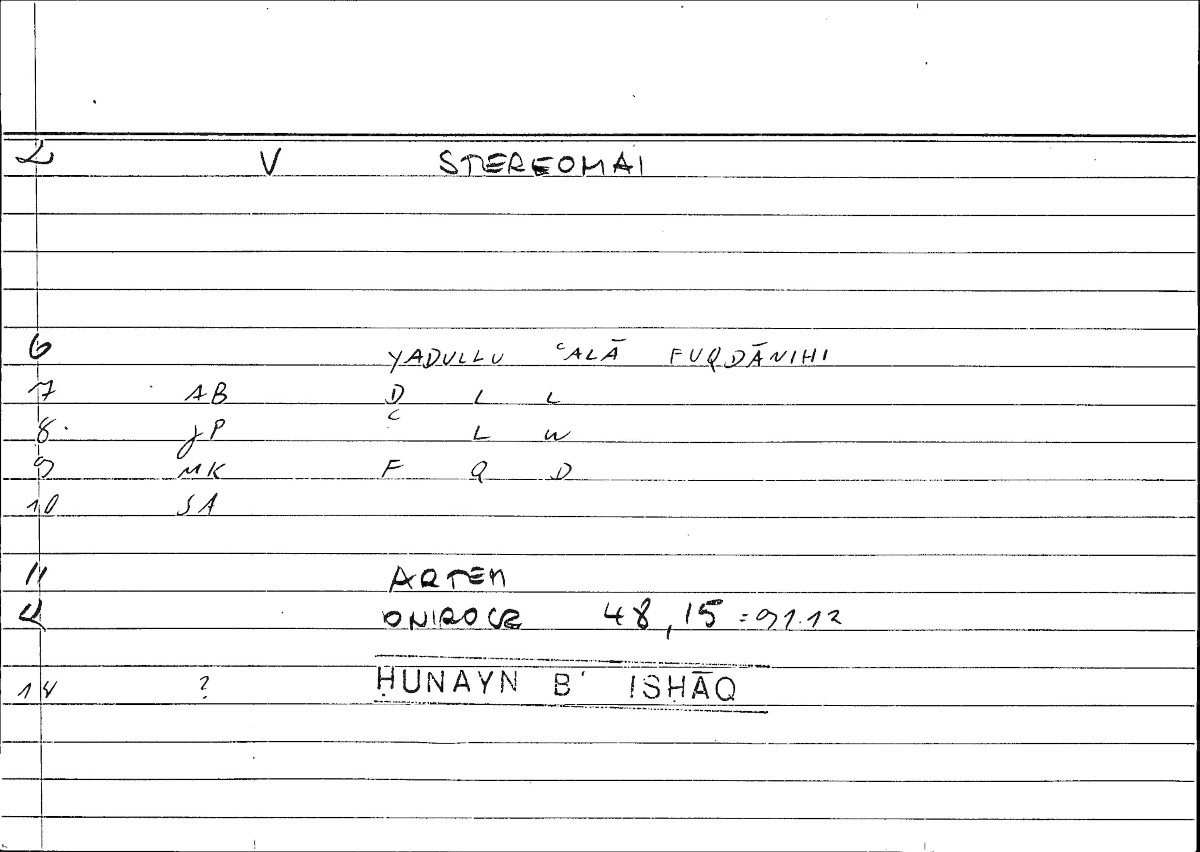 2 V STEREOMAI
6 YADULLU ʿALĀ FUQDĀNIHI
7 AB D L L
8 JP ʿ L W
9 MK F Q D
10 SA
11 ARTEM
ONIROCR 48,15 = 91.12
14 ? ḤUNAYN B' ISḤĀQ